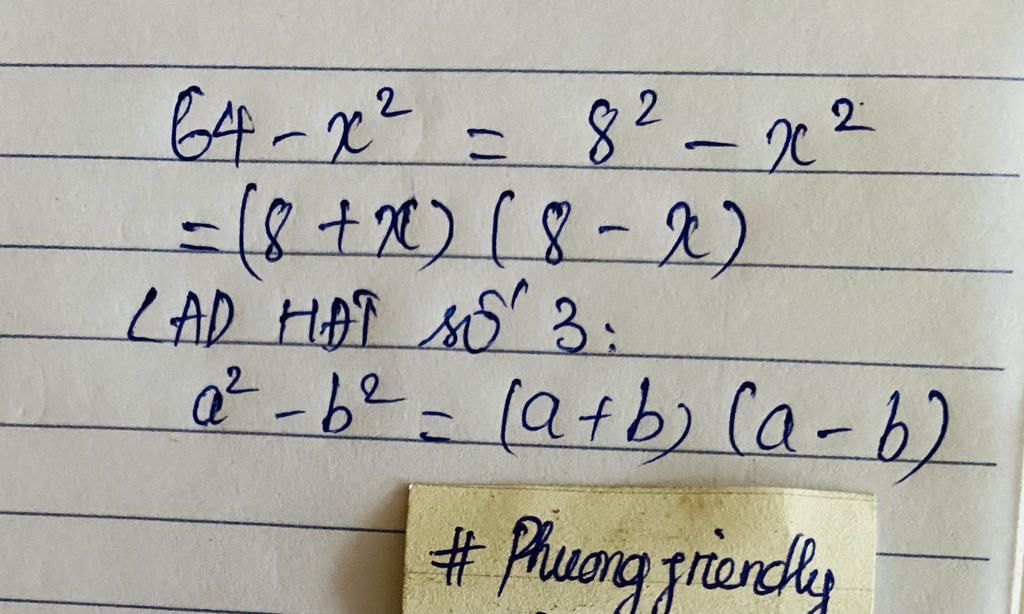 64 - x² = 8² - x²
= (8 + x) (8 - x)
(AD HĐT số 3:
a² - b² = (a + b) (a - b)
# Phuong friendly